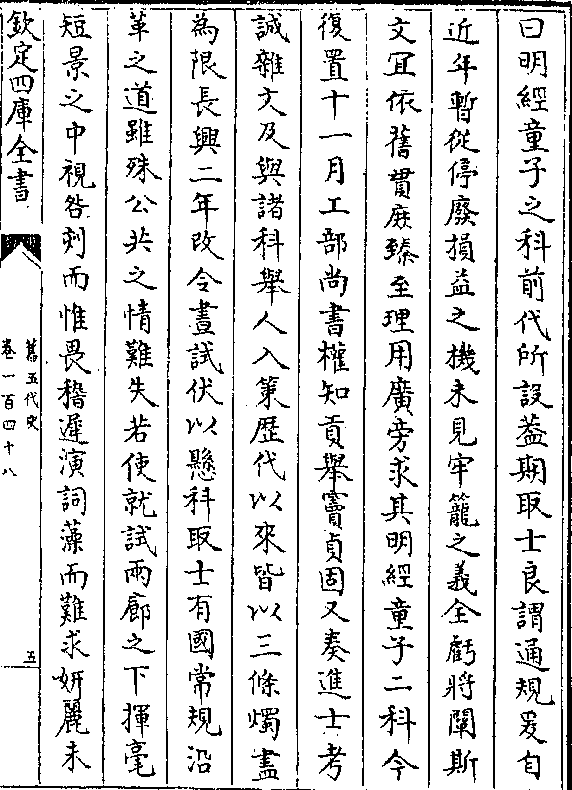 曰明經童子之科前代所設葢期取士良謂通規爰自
近年暫從停廢損益之機未見牢籠之義全虧將闡斯
文宜依舊貫庶臻至理用廣旁求其明經童子二科今
復置十一月工部尚書權知貢舉竇貞固又奏進士考
誠雜文及與諸科舉人入策歴代以來皆以三條燭盡
為限長興二年改令晝試伏以懸科取士有國常規沿
革之道雖殊公共之情難失若使就試兩廊之下揮毫
短景之中視晷刻而惟畏稽遲演詞藻而難求妍麗未
欽定四庫全書
舊五代史
卷一百四十八
五